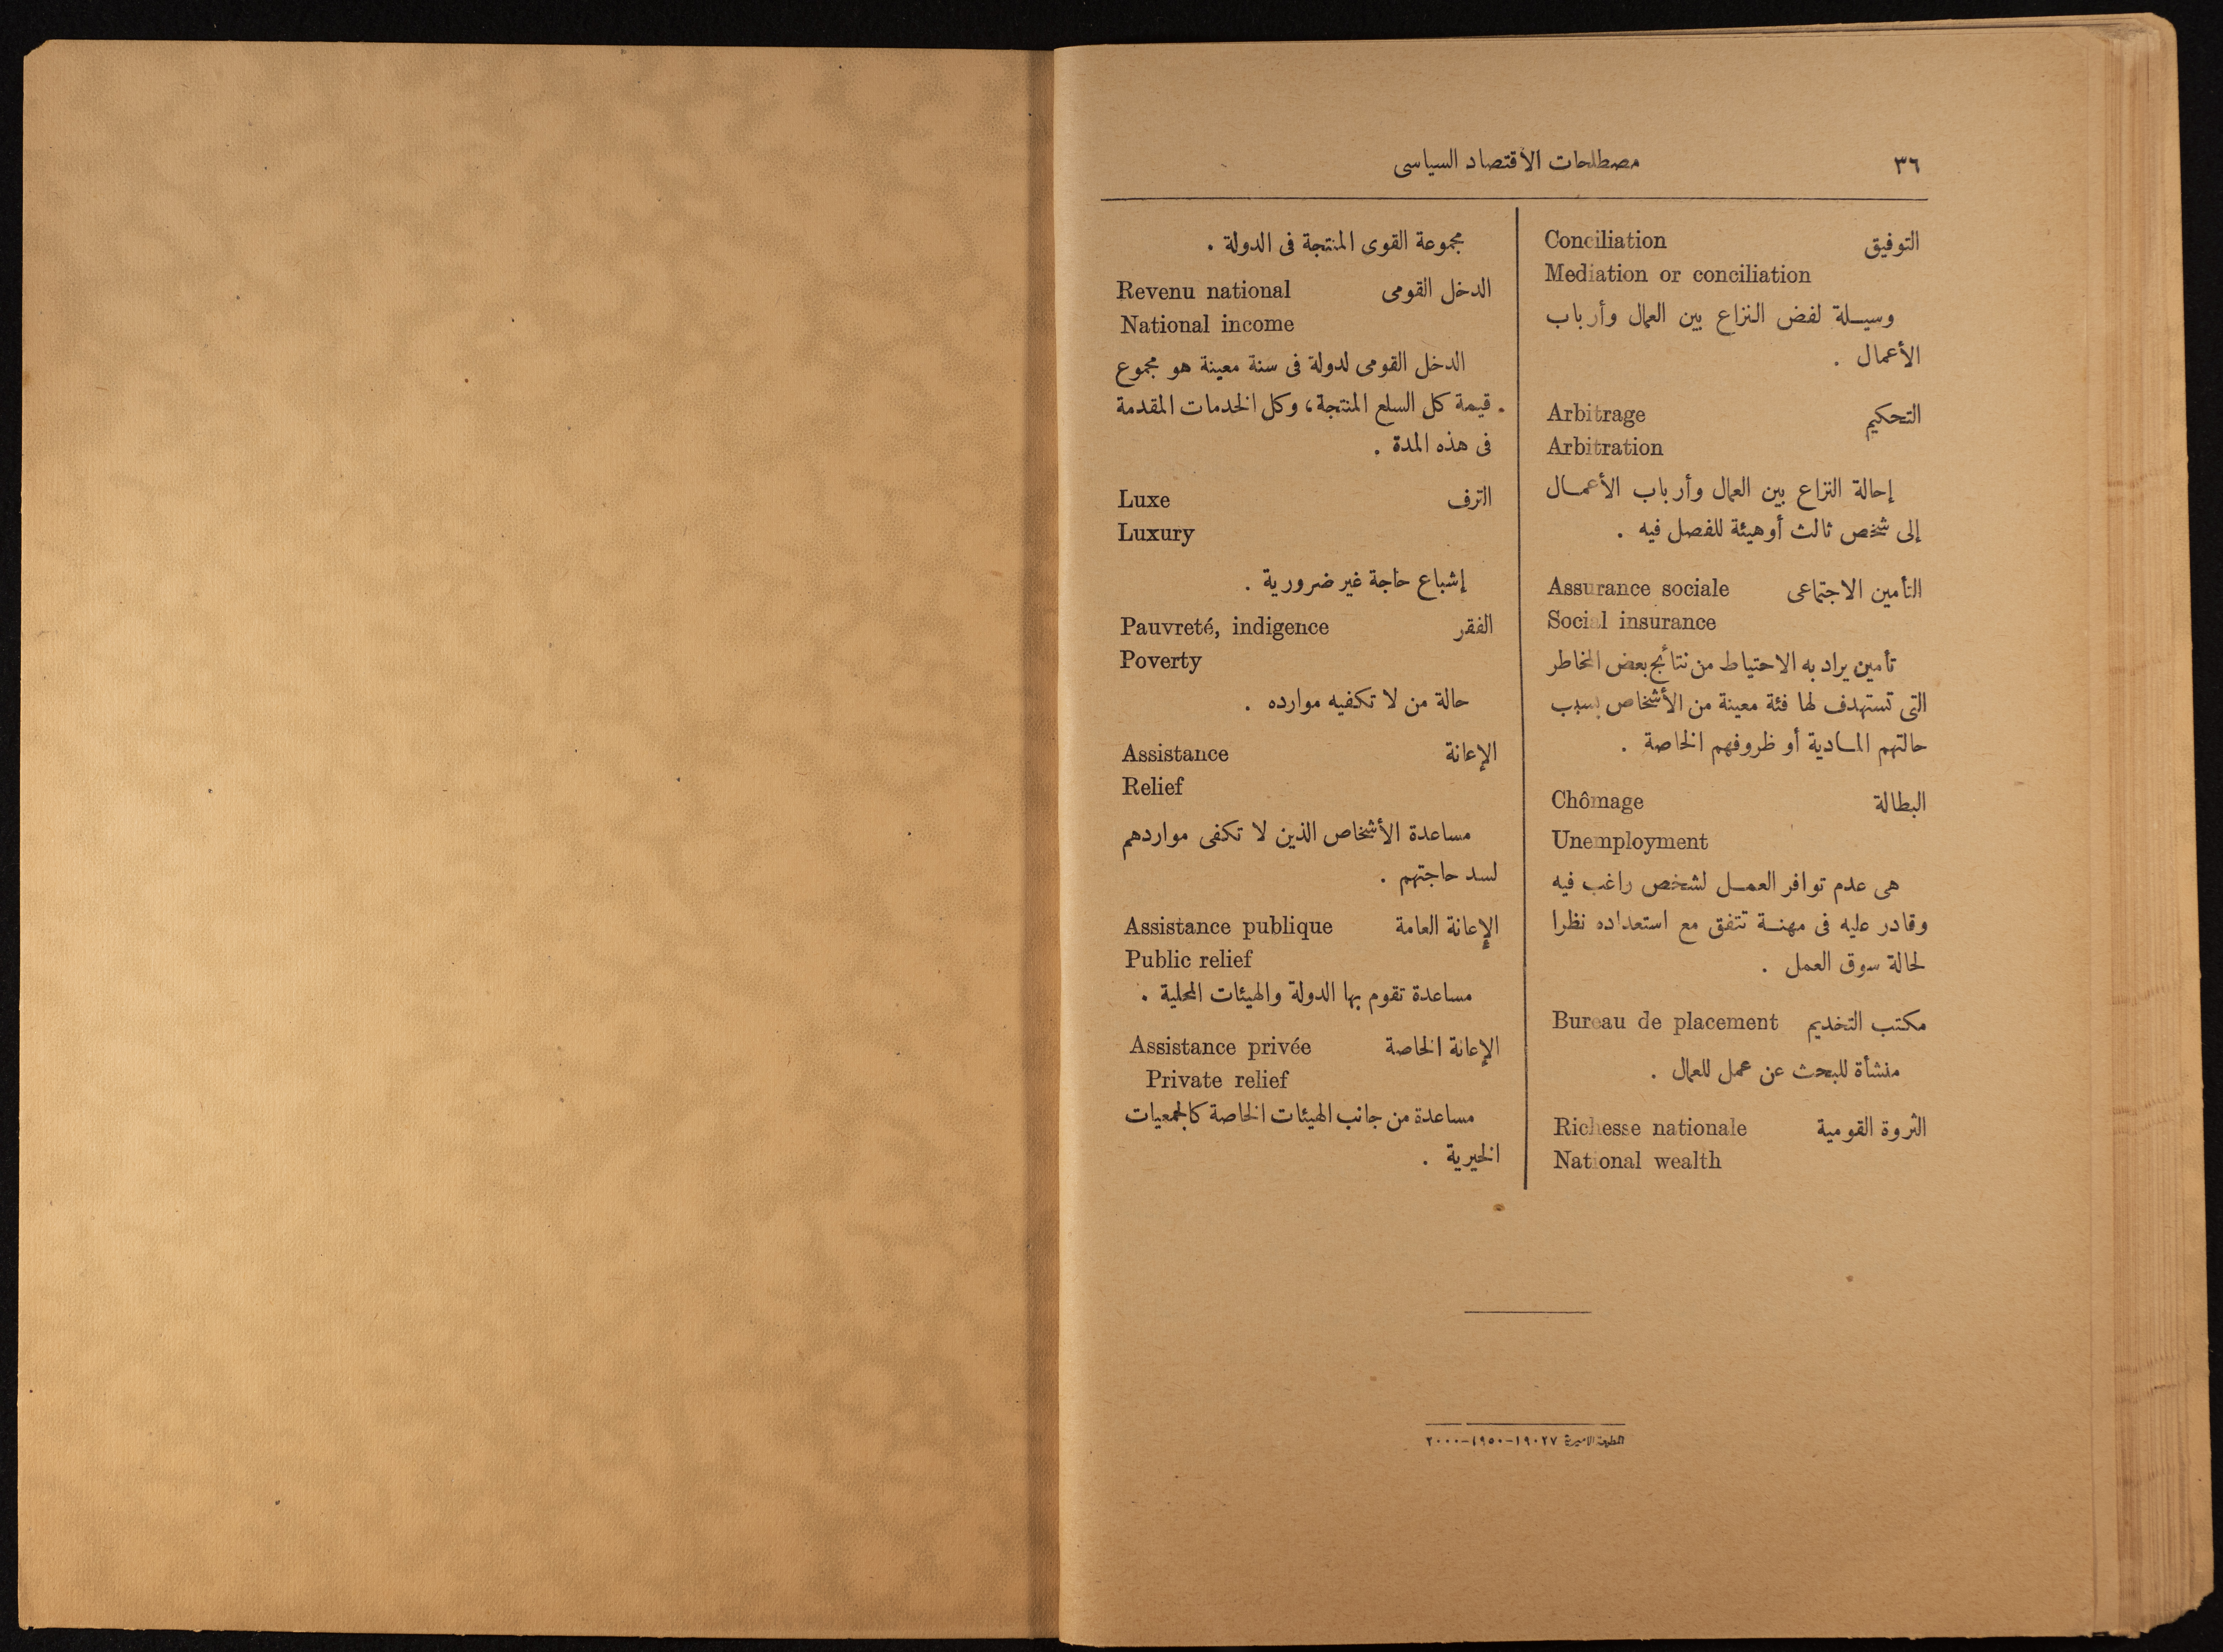 ٣٦
مصطلحات الاقتصاد السياسى
التوفيق Conciliation
Mediation or conciliation
وسيلة لفض النزاع بين العمال وأرباب
الأعمال .
التحكيم Arbitrage
Arbitration
إحالة النزاع بين العمال وأرباب الأعمال
إلى شخص ثالث أو هيئة للفصل فيه .
التأمين الاجتماعى Assurance sociale
Social insurance
تأمين يراد به الاحتياط من نتائج بعض المخاطر
التى تستهدف لها فئة معينة من الأشخاص بسبب
حالتهم المادية أو ظروفهم الخاصة .
البطالة Chômage
Unemployment
هى عدم توافر العمل لشخص راغب فيه
وقادر عليه فى مهنة تتفق مع استعداده نظرا
لحالة سوق العمل .
مكتب التخديم Bureau de placement
منشأة للبحث عن عمل للعمال .
الثروة القومية Richesse nationale
National wealth
مجموعة القوى المنتجة فى الدولة .
الدخل القومى Revenu national
National income
الدخل القومى لدولة فى سنة معينة هو مجموع
قيمة كل السلع المنتجة، وكل الخدمات المقدمة
فى هذه المدة .
الترف Luxe
Luxury
إشباع حاجة غير ضرورية .
الفقر Pauvreté, indigence
Poverty
حالة من لا تكفيه موارده .
الإعانة Assistance
Relief
مساعدة الأشخاص الذين لا تكفى مواردهم
لسد حاجتهم .
الإعانة العامة Assistance publique
Public relief
مساعدة تقوم بها الدولة والهيئات المحلية .
الإعانة الخاصة Assistance privée
Private relief
مساعدة من جانب الهيئات الخاصة كالجمعيات
الخيرية .
المطبعة الاميرية ١٩٠٢٧-١٩٥٠-٢٠٠٠